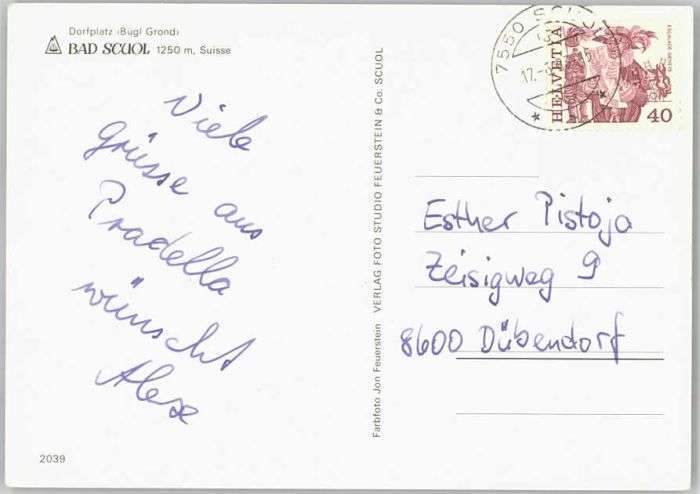 Dorfplatz ‹Bügl Grond›
BAD SCUOL 1250 m, Suisse
Viele
Grüsse aus
Pradella
wünscht
Alex
2039
Farbfoto Jon Feuerstein VERLAG FOTO STUDIO FEUERSTEIN & Co. SCUOL
7550 SCUOL
17.
HELVETIA
40
Esther Pistoja
Zeisigweg 9
8600 Dübendorf